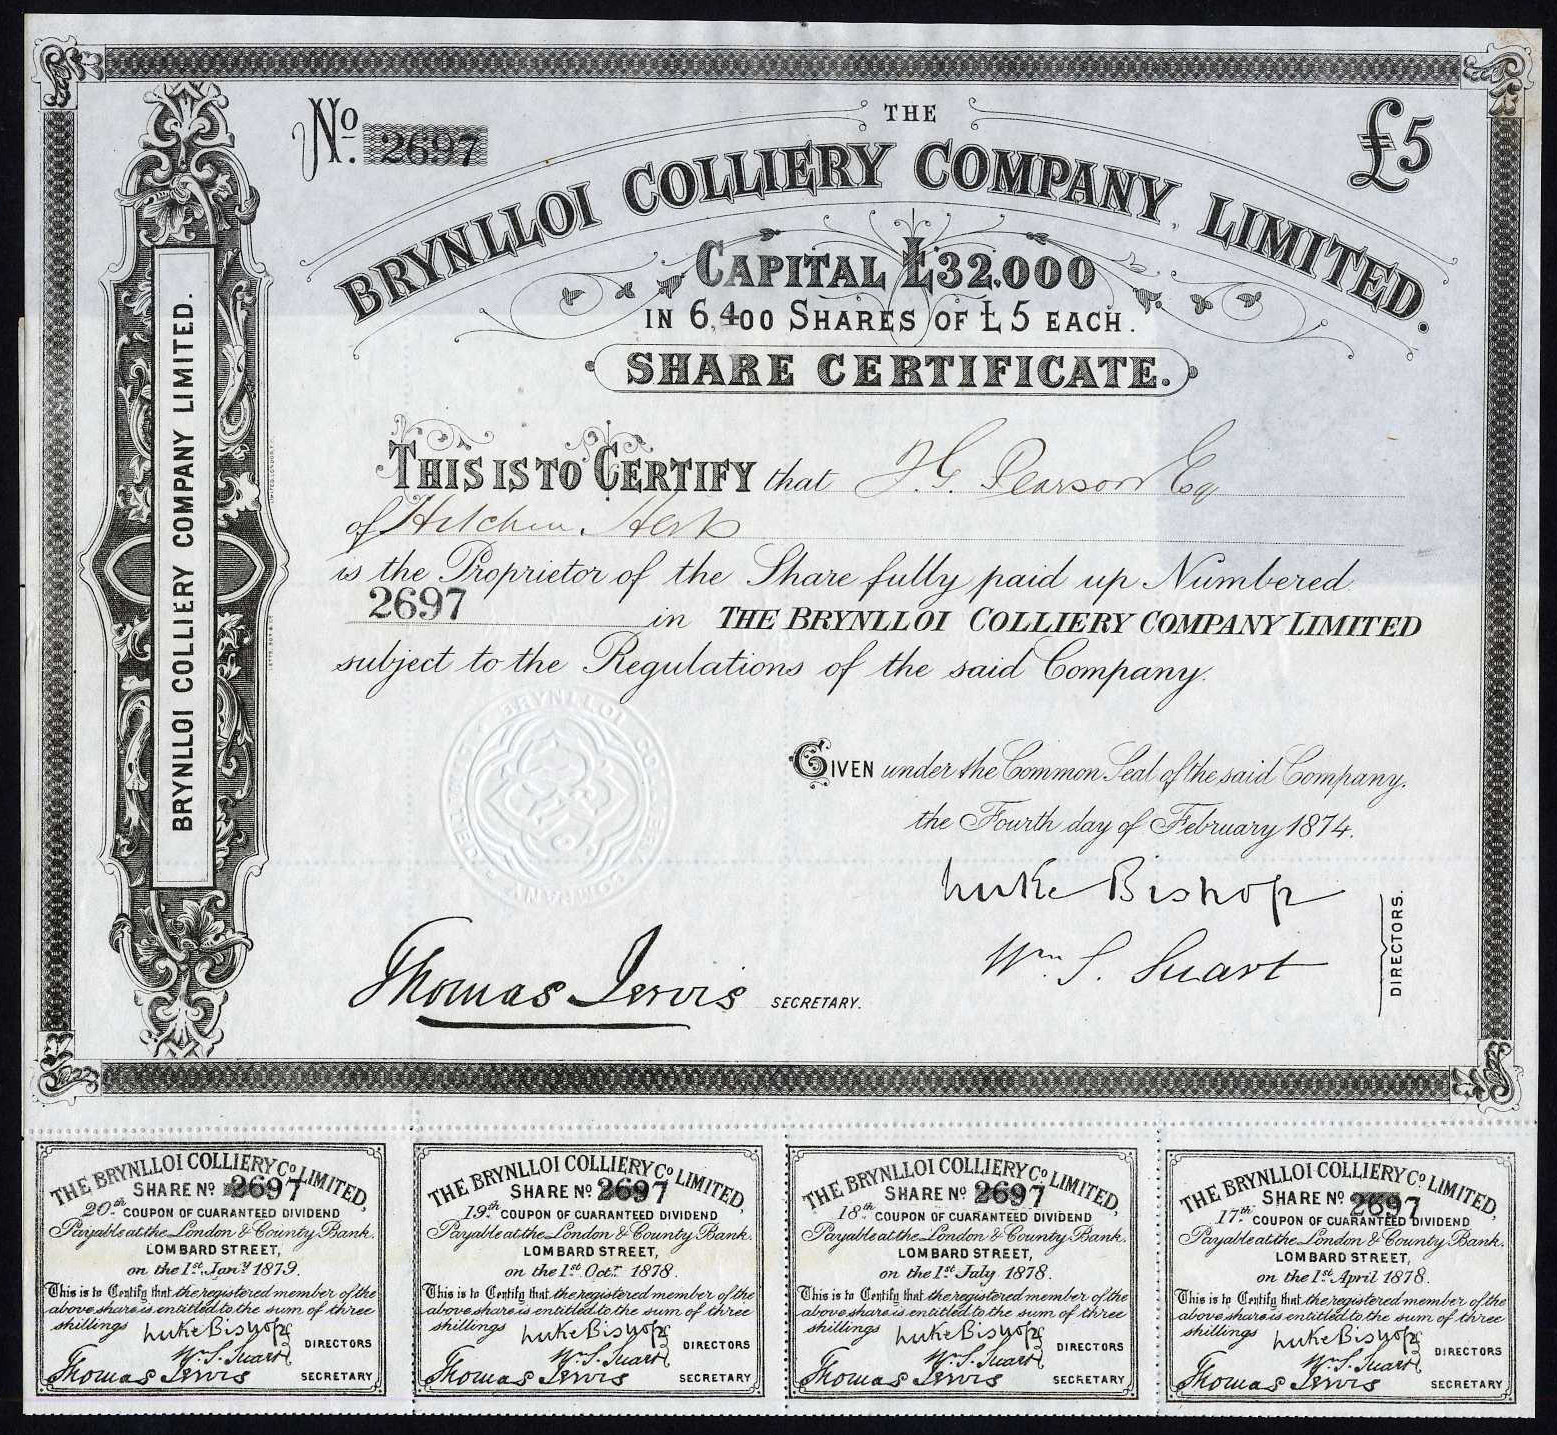 No. 2697
£5
THE
BRYNLLOI COLLIERY COMPANY, LIMITED.
CAPITAL £32.000
IN 6,400 SHARES OF £5 EACH.
SHARE CERTIFICATE.
BRYNLLOI COLLIERY COMPANY LIMITED.
THIS IS TO CERTIFY that J. G. Pearson Esq
of Hitchin. Herts
is the Proprietor of the Share fully paid up Numbered
2697 in THE BRYNLLOI COLLIERY COMPANY LIMITED
subject to the Regulations of the said Company.
BRYNLLOI COLLIERY COMPANY LIMITED
GIVEN under the Common Seal of the said Company.
the Fourth day of February 1874.
Luke Bishop
Wm. S. Suart
DIRECTORS.
Thomas Jervis SECRETARY.
THE BRYNLLOI COLLIERY Co. LIMITED,
SHARE No. 2697
20th COUPON OF GUARANTEED DIVIDEND
Payable at the London & County Bank.
LOMBARD STREET,
on the 1st Jany 1879.
This is to Certify that the registered member of the
above share is entitled to the sum of three
shillings Luke Bishop
Wm. S. Suart DIRECTORS
Thomas Jervis SECRETARY
THE BRYNLLOI COLLIERY Co. LIMITED,
SHARE No. 2697
19th COUPON OF GUARANTEED DIVIDEND
Payable at the London & County Bank.
LOMBARD STREET,
on the 1st Octr 1878.
This is to Certify that the registered member of the
above share is entitled to the sum of three
shillings Luke Bishop
Wm. S. Suart DIRECTORS
Thomas Jervis SECRETARY
THE BRYNLLOI COLLIERY Co. LIMITED,
SHARE No. 2697
18th COUPON OF GUARANTEED DIVIDEND
Payable at the London & County Bank.
LOMBARD STREET,
on the 1st July 1878.
This is to Certify that the registered member of the
above share is entitled to the sum of three
shillings Luke Bishop
Wm. S. Suart DIRECTORS
Thomas Jervis SECRETARY
THE BRYNLLOI COLLIERY Co. LIMITED,
SHARE No. 2697
17th COUPON OF GUARANTEED DIVIDEND
Payable at the London & County Bank.
LOMBARD STREET,
on the 1st April 1878.
This is to Certify that the registered member of the
above share is entitled to the sum of three
shillings Luke Bishop
Wm. S. Suart DIRECTORS
Thomas Jervis SECRETARY